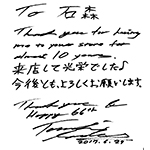 To 石森
Thank you for having
me to your store for
almost 10 years.
来店して光栄でした♪
今後ともよろしくお願いします。
Thank you &
Happy 66th
2017.6.29